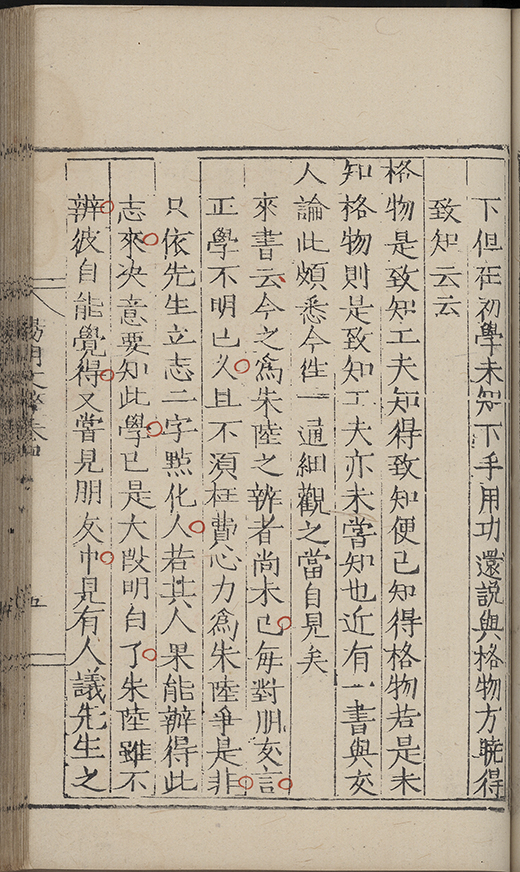 下但在初學未知下手用功還說與格物方曉得
致知云云
格物是致知工夫知得致知便已知得格物若是未
知格物則是致知工夫亦未嘗知也近有一書與友
人論此頗悉今往一通細觀之當自見矣
來書云今之爲朱陸之辨者尚未已每對朋友言
正學不明已久且不須枉費心力爲朱陸爭是非
只依先生立志二字點化人若其人果能辦得此
志來决意要知此學已是大段明白了朱陸雖不
辨彼自能覺得又嘗見朋友中見有人議先生之
陽明文
五